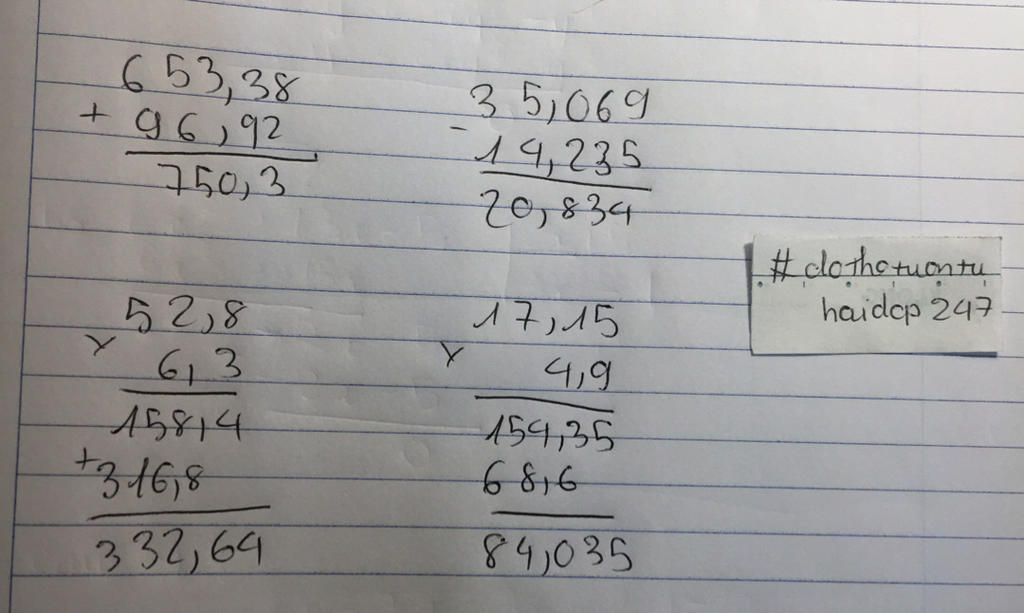 653,38
+ 96,92
750,3
- 35,069
14,235
20,834
# dothotuontu
haidcp 247
52,8
x 6,3
158,4
+ 316,8
332,64
17,15
x 4,9
154,35
68,6
84,035